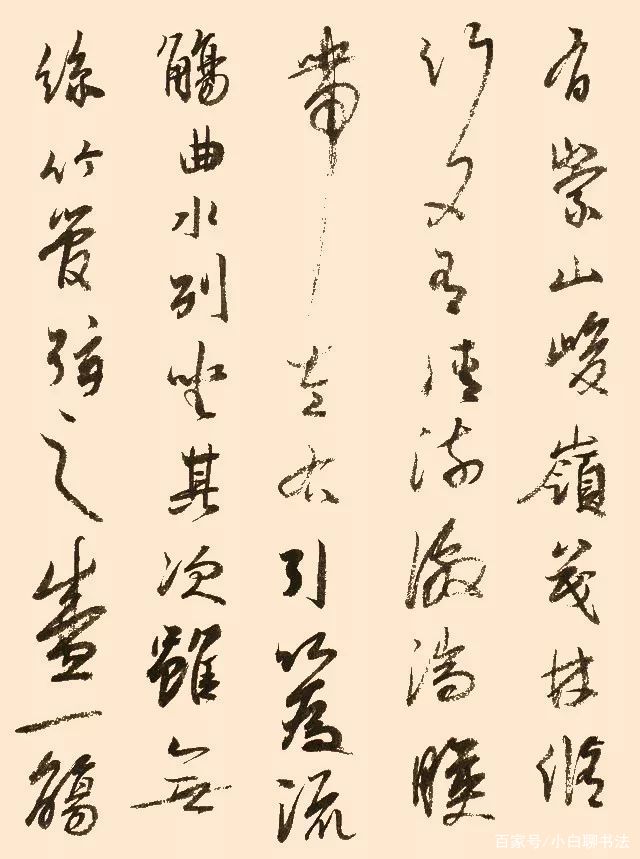 有崇山峻嶺茂林脩
竹又有清流激湍暎
帶左右引以為流
觴曲水列坐其次雖無
絲竹管弦之盛一觴
百家号/小白聊书法